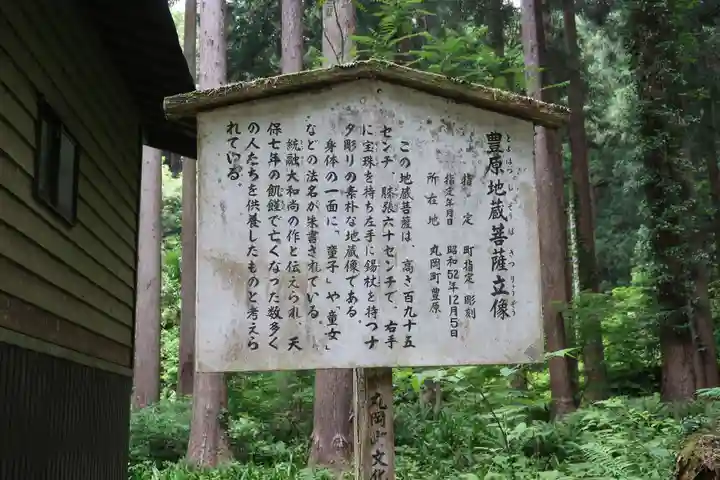 豊原地蔵菩薩立像
指定 町指定 彫刻
指定年月日 昭和52年12月5日
所在地 丸岡町豊原
この地蔵菩薩は、高さ百九十五
センチ、膝張六十センチで、右手
に宝珠を持ち左手に錫杖を持つナ
タ彫りの素朴な地蔵像である。
身体の一面に、「童子」や「童女」
などの法名が朱書されている。
統融大和尚の作と伝えられ、天
保七年の飢饉で亡くなった数多く
の人たちを供養したものと考えら
れている。
丸岡町文化